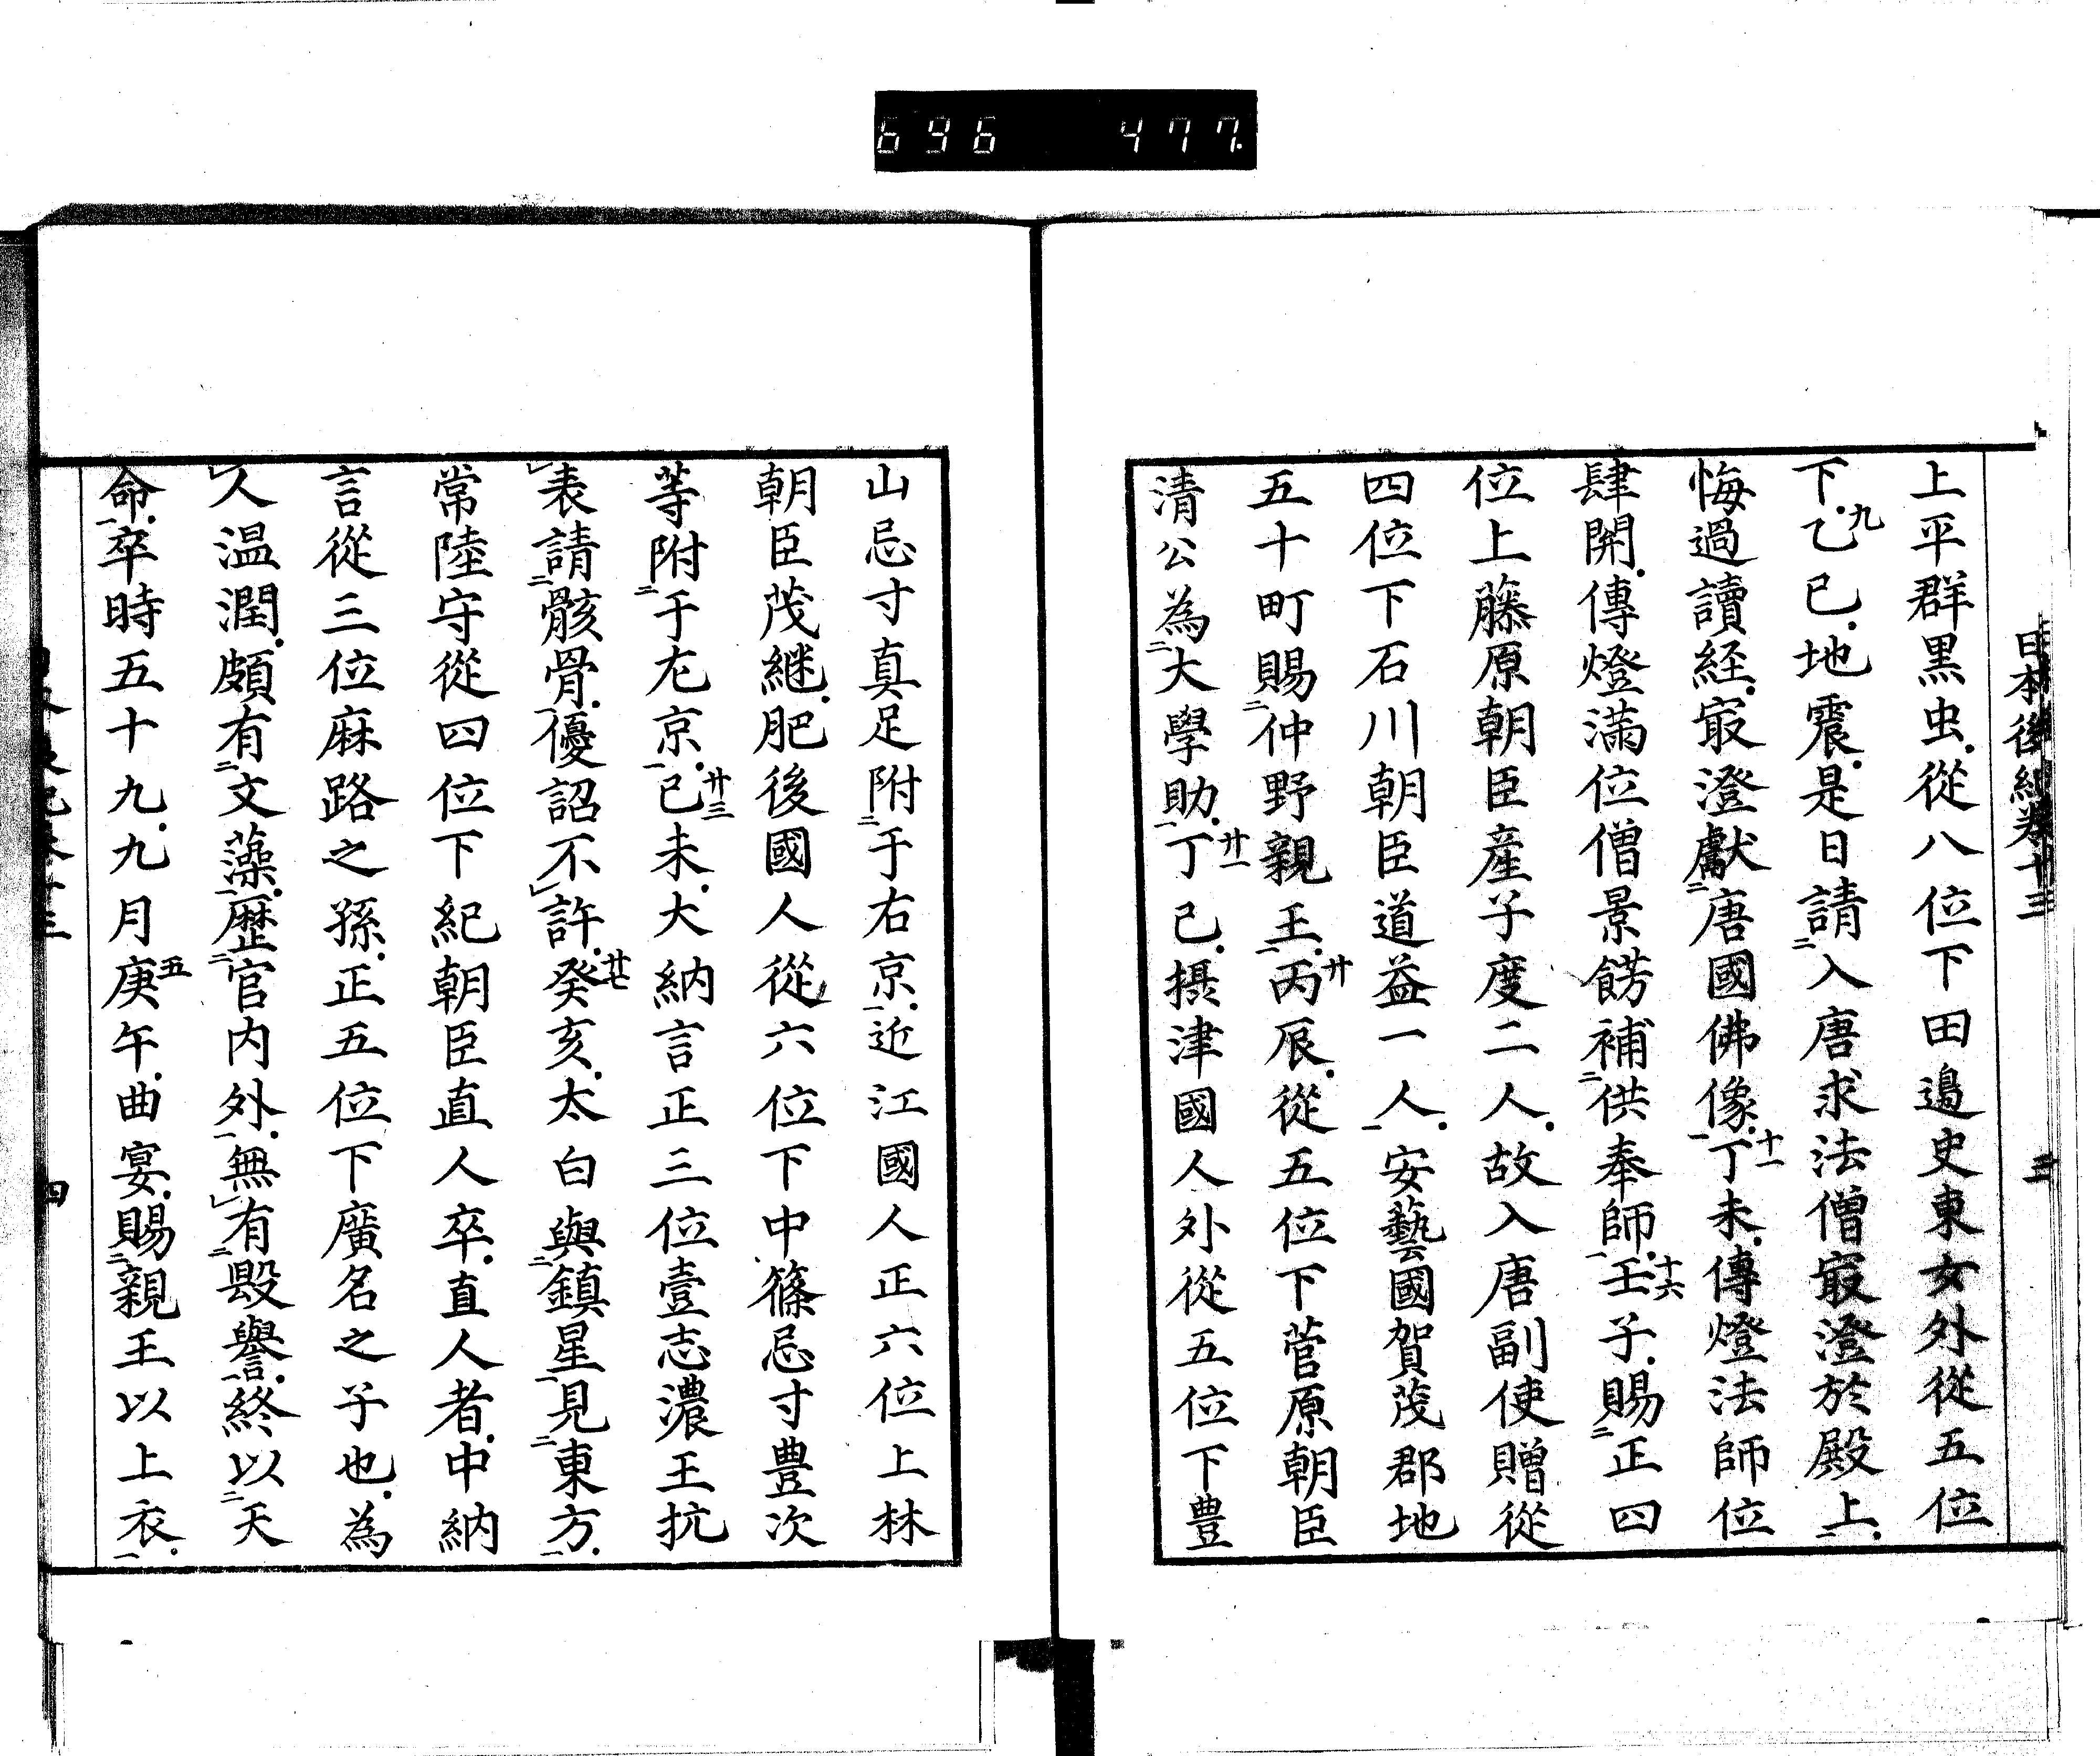 696 477.
日本後紀卷十三 三
上平群黒虫。從八位下田邊史東女外從五位
下。乙九巳。地震。是日請二入唐求法僧㝡澄於殿上一。
悔過讀経。㝡澄獻二唐國佛像一。丁十一未。傳燈法師位
肆開。傳燈滿位僧景餝補二供奉師一。壬十六子。賜二正四
位上藤原朝臣産子度二人。故入唐副使贈從
四位下石川朝臣道益一人一。安藝國賀茂郡地
五十町賜二仲野親王一。丙廿辰。從五位下菅原朝臣
清公為二大學助一。丁廿一巳。摂津國人外從五位下豊
山忌寸真足附二于右京一。近江國人正六位上林
朝臣茂継。肥後國人從六位下中篠忌寸豊次
等附二于左京一。己廿三未。大納言正三位壹志濃王抗
レ表請二骸骨一。優詔不レ許。癸廿七亥。太白與二鎮星一見二東方一。
常陸守從四位下紀朝臣直人卒。直人者。中納
言從三位麻路之孫。正五位下廣名之子也。為
レ人温潤。頗有二文藻一。歴二官内外一。無レ有二毀譽一。終以二天
命一。卒時五十九。九月庚五午。曲宴。賜二親王以上衣一。
四